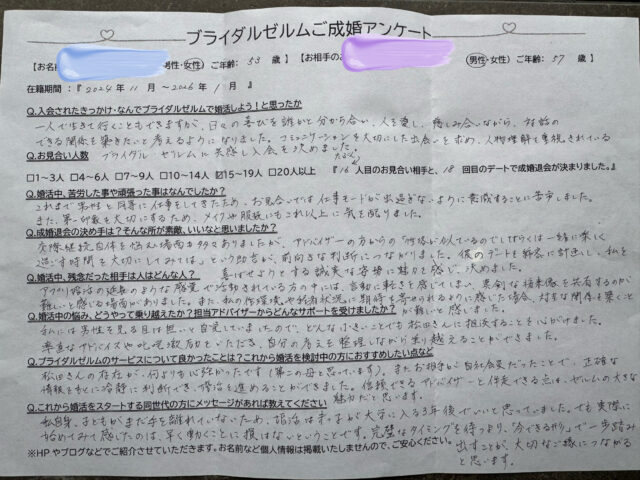 ブライダルゼルムご成婚アンケート
【お名 男性・女性） ご年齢： 53 歳 】 【お相手の 男性・女性） ご年齢： 57 歳 】
在籍期間 ：『 2024年 11 月 ～ 2026年 1 月 』
Q.入会されたきっかけ・なんでブライダルゼルムで婚活しよう！と思ったか
一人で生きて行くこともできますが、日々の喜びを誰かと分かち合い、人を愛し、慈しみ合いながら、対話の
できる関係を築きたいと考えるようになりました。コミュニケーションを大切にした出会いを求め、人物理解を重視されている
Q.お見合い人数 ブライダル・ゼルムに共感し入会を決めました。
□1～3人 □4～6人 □7～9人 □10～14人 ☑15～19人 □20人以上 『 16 人目のお見合い相手と、 18 回目のデートで成婚退会が決まりました。』
Q.婚活中、苦労した事や頑張った事はなんでしたか？
これまで男性と同等に仕事をしてきたため、お見合いでは仕事モードが出過ぎないように意識することに苦労しました。
また、第一印象も大切にするため、メイクや服装にもこれ以上に気を配りました。
Q.成婚退会の決め手は？そんな所が素敵、いいなと思いましたか？
交際継続自体を悩んだ場面も多々ありましたが、アドバイザーの方からの「性格が似ているのでしばらくは一緒に楽しく
過ごす時間を大切にしてみては」という助言が、前向きな判断につながりました。彼のデートを綿密に計画し、私を
Q.婚活中、残念だった相手は人はどんな人？ 喜ばせようとする誠実な姿勢に魅力を感じ、決めました。
アプリ婚活の延長のような感覚で活動されている方の中には、言動に軽さを感じてしまい、真剣な将来像を共有するのが
難しいと感じる場面がありました。また、私の住環境や経済状況に期待を寄せられるように感じた場合、対等な関係を築くこと
Q.婚活中の悩み、どうやって乗り越えたか？担当アドバイザーからどんなサポートを受けましたか？ が難しいと感じました。
私には男性を見る目は無いと自覚していましたので、どんな小さいことでも松田さんに相談することを心がけました。
率直なアドバイスや叱咤激励をいただき、自分の考えを整理しながら乗り越えることができました。
Q.ブライダルゼルムのサービスについて良かったことは？これから婚活を検討中の方におすすめしたい点など
松田さんの存在が、何よりも心強かったです（第二の母と思っています）。またお相手が自社会員だったことで、正確な
情報をもとに冷静に判断でき、婚活を進めることができました。信頼できるアドバイザーと伴走できる点は、ゼルムの大きな
魅力だと思います。
Q.これから婚活をスタートする同世代の方にメッセージがあれば教えてください
私自身、子どもがまだ手を離れていないため、婚活は末っ子が大学に入る3年後でいいと思っていました。でも実際に
始めてみて感じたのは、早く動くことに損はないということです。完璧なタイミングを待つより、「今できる形」で一歩踏み
※HPやブログなどでご紹介させていただきます。お名前など個人情報は掲載いたしませんので、ご安心ください。 出すことが、大切なご縁につながる
と思います。